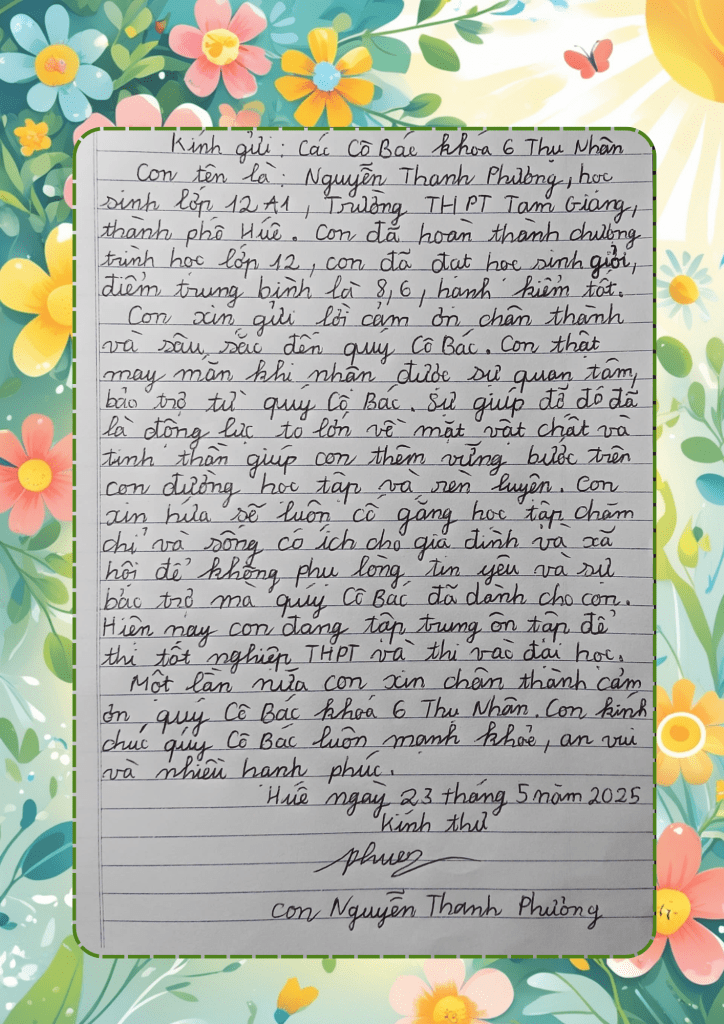 Kính gửi: Các Cô Bác khoá 6 Thụ Nhân
Con tên là: Nguyễn Thanh Phương, học
sinh lớp 12A1, Trường THPT Tam Giang,
thành phố Huế. Con đã hoàn thành chương
trình học lớp 12, con đã đạt học sinh giỏi,
điểm trung bình là 8,6, hạnh kiểm tốt.
Con xin gửi lời cảm ơn chân thành
và sâu sắc đến quý Cô Bác. Con thật
may mắn khi nhận được sự quan tâm,
bảo trợ từ quý Cô Bác. Sự giúp đỡ đó đã
là động lực to lớn về mặt vật chất và
tinh thần giúp con thêm vững bước trên
con đường học tập và rèn luyện. Con
xin hứa sẽ luôn cố gắng học tập chăm
chỉ và sống có ích cho gia đình và xã
hội để không phụ lòng tin yêu và sự
bảo trợ mà quý Cô Bác đã dành cho con.
Hiện nay con đang tập trung ôn tập để
thi tốt nghiệp THPT và thi vào đại học.
Một lần nữa con xin chân thành cảm
ơn quý Cô Bác khoá 6 Thụ Nhân. Con kính
chúc qúy Cô Bác luôn mạnh khoẻ, an vui
và nhiều hạnh phúc.
Huế ngày 23 tháng 5 năm 2025
Kính thư
Phương
Con Nguyễn Thanh Phương